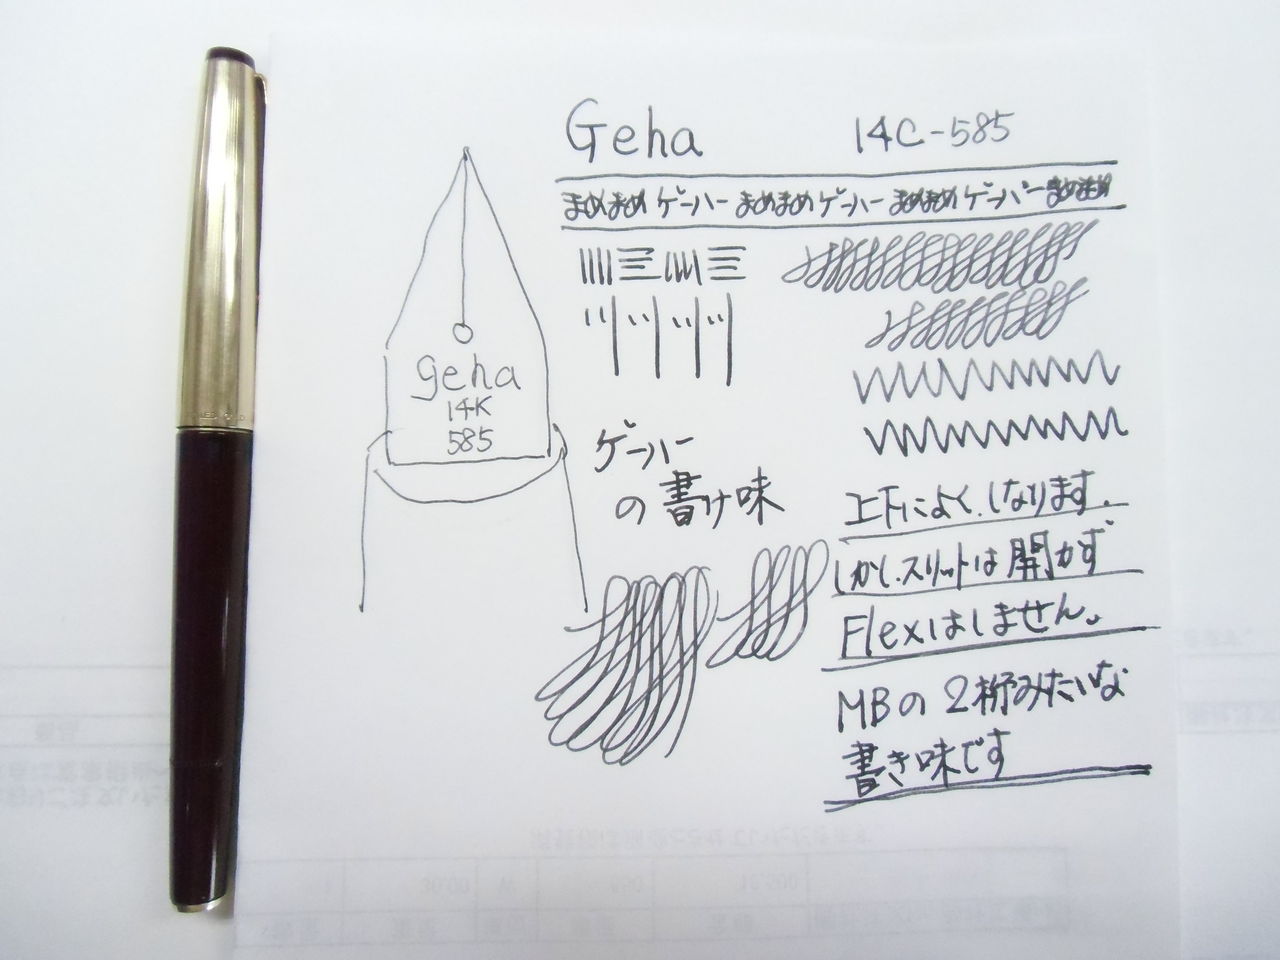 Geha 14C-585
まめまめ ゲーハー まめまめ ゲーハー まめまめ ゲーハー まめまめ
geha
14K
585
ゲーハー
の書け味
上下によく、しなります。
しかし、スリットは開かず
Flexはしません。
MBの2桁みたいな
書き味です